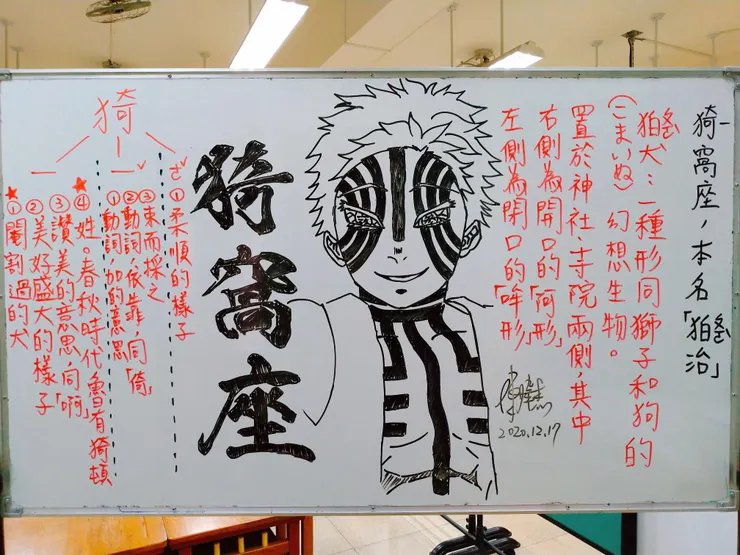 猗窩座，本名「狛治」
狛犬：一種形同獅子和狗的
（こまいぬ）幻想生物。
置於神社、寺院兩側，其中
右側為開口的「阿形」
左側為閉口的「吽形」
2020.12.17
猗窩座
猗
①柔順的樣子
ㄧˇ
③束而採之
②動詞，依靠，同「倚」
①動詞，加的意思
ㄧ
★④姓，春秋時代，魯有猗頓
③讚美的意思，同「啊」
②美好盛大的樣子
★①閹割過的犬